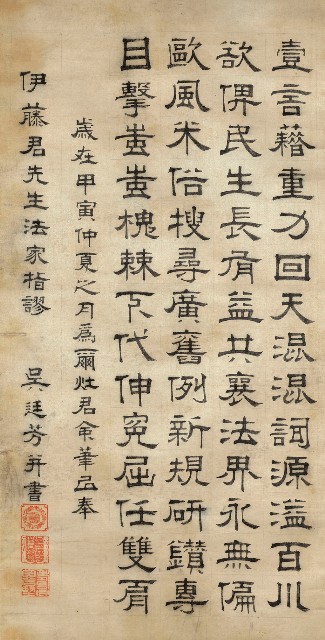 壹言藉重力回天混混詞源溢百川
欲俾民生長有益共襄法界永無偏
歐風米俗搜尋廣舊例新規研鑽專
目擊蚩蚩槐棘下代伸冤屈任雙肩
歲在甲寅仲夏之月爲爾
君命筆並奉
伊藤君先生法家指謬
吳廷芳并書